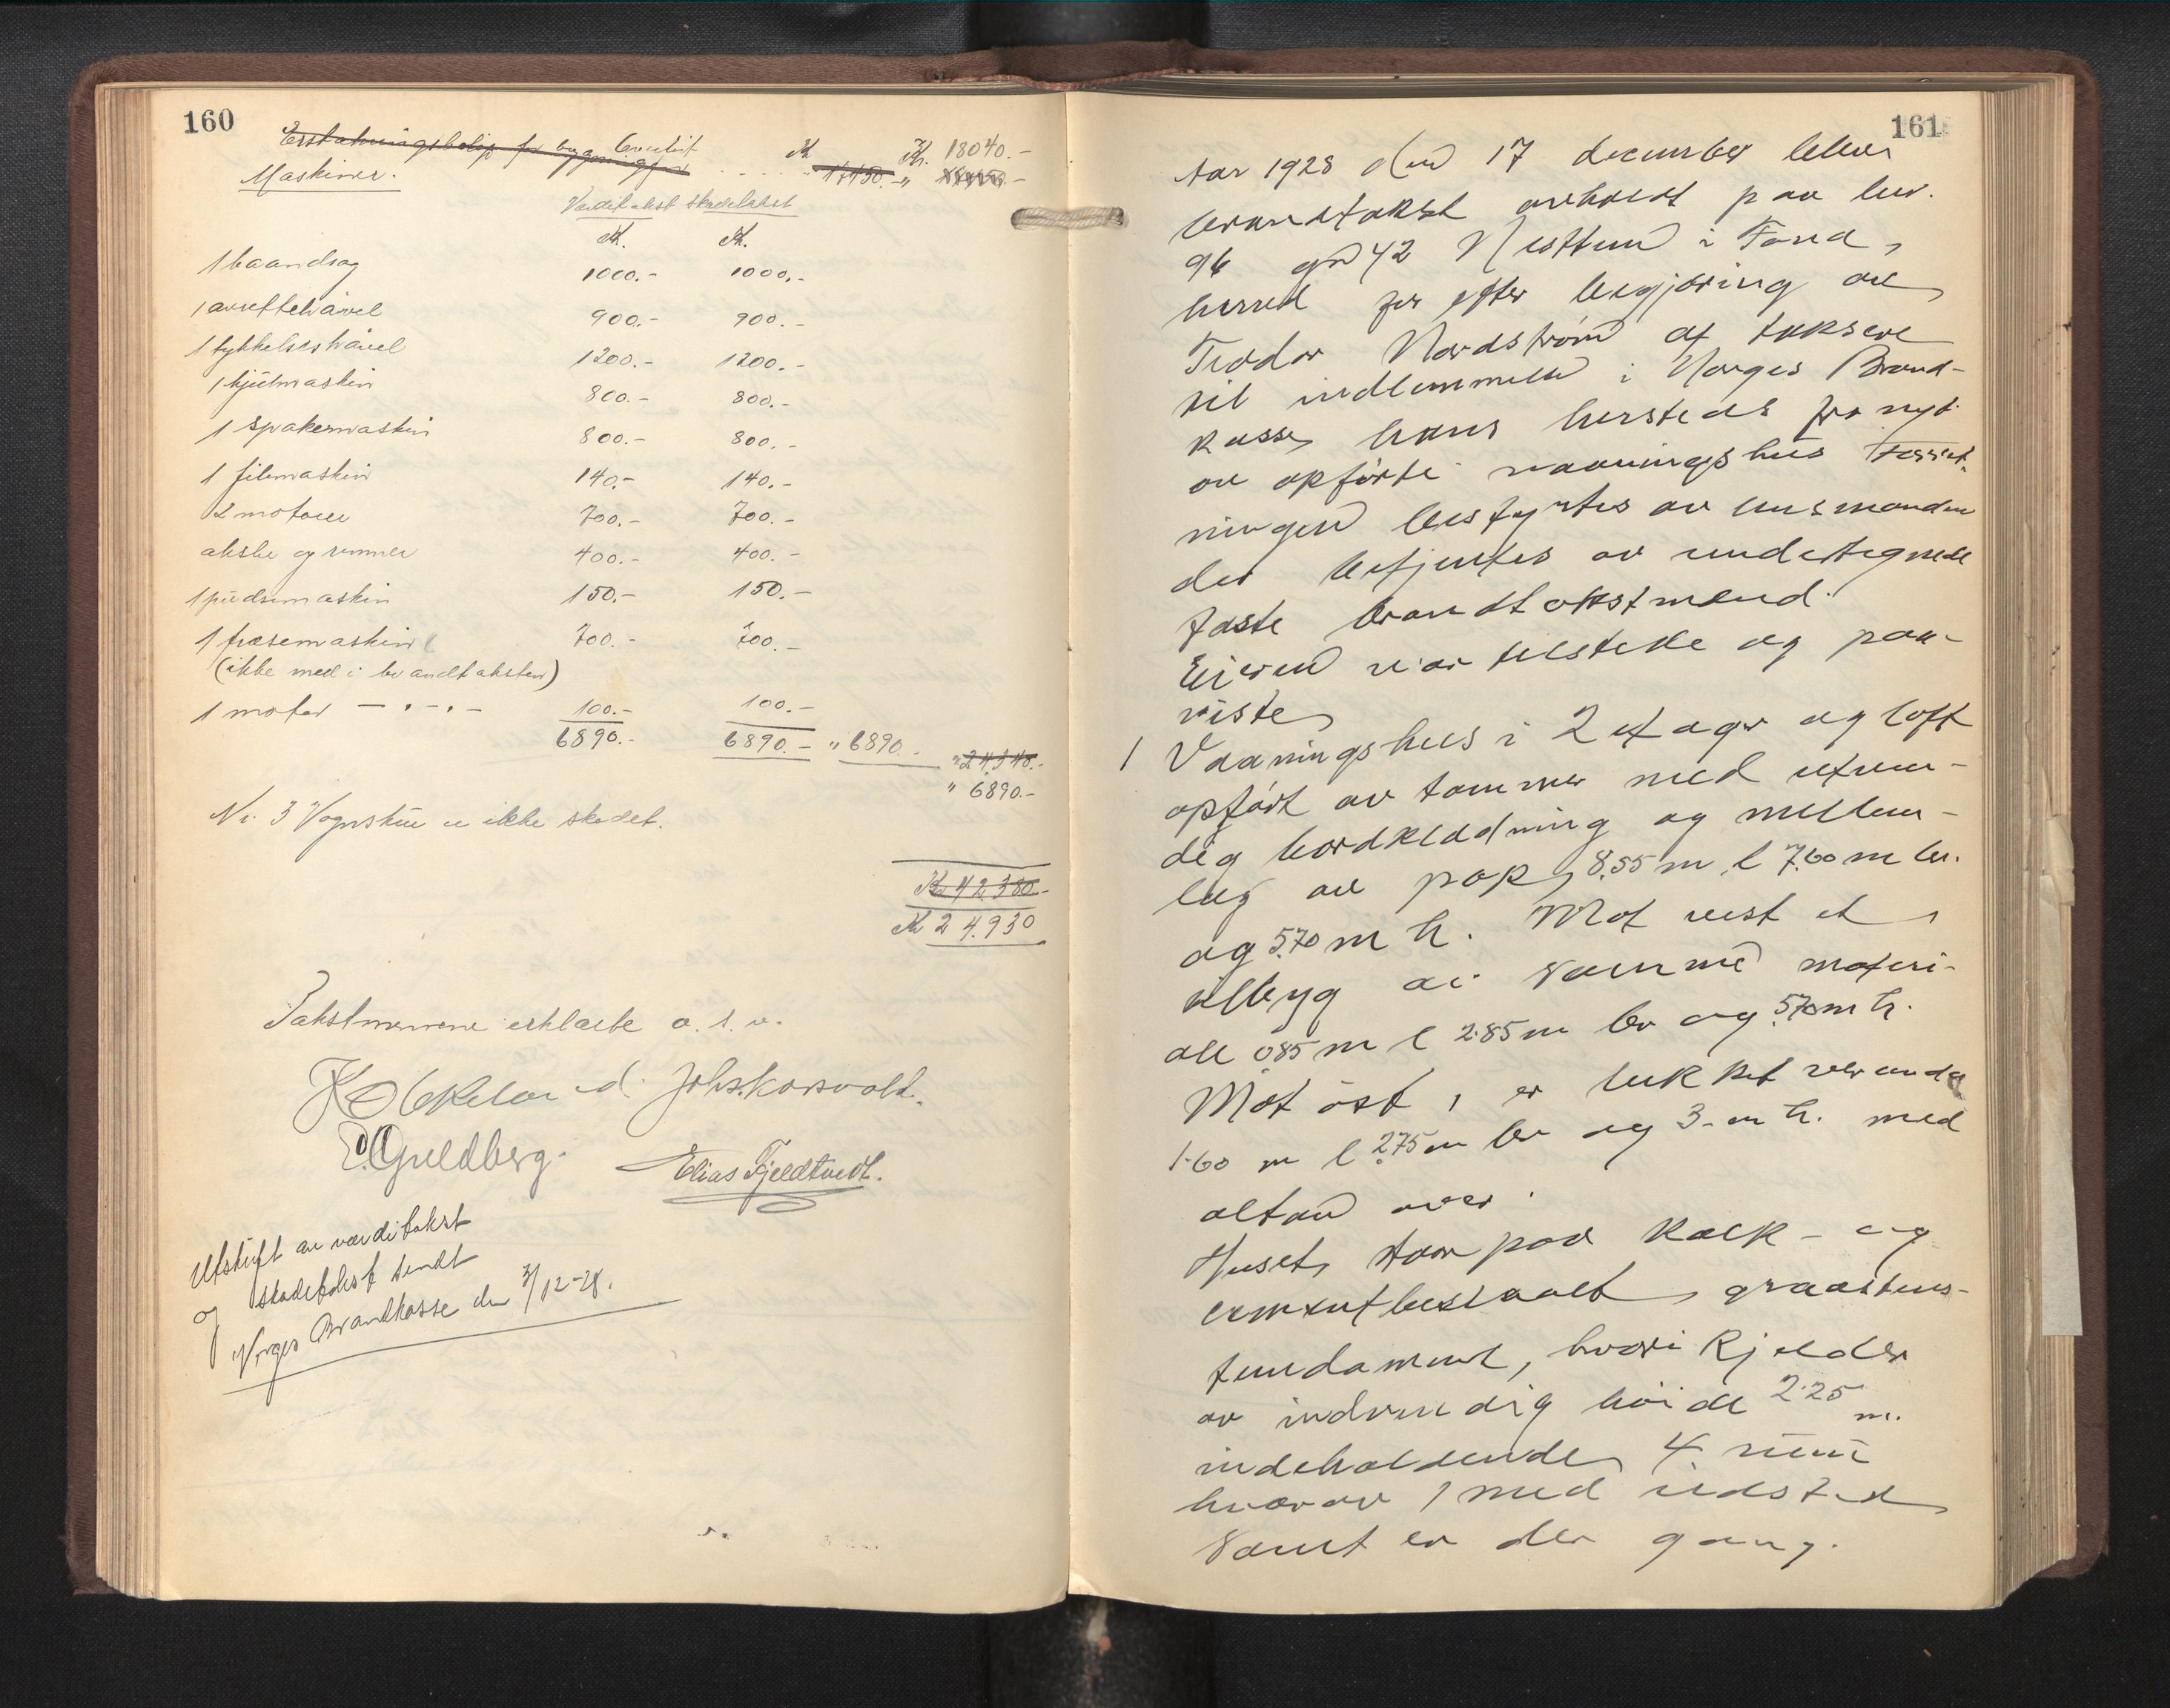 160
Erstatningsbeløp for bygningfor Kr. Kr. 18040.-
Maskiner. 17450.- "
Verditakst Skadetakst
Kr. Kr.
1 baandsag 1000.- 1000.-
1 avrettehøvel 900.- 900.-
1 tykkelseshøvel 1200.- 1200.-
1 hjulmaskin 800.- 800.-
1 spakermaskin 800.- 800.-
1 filemaskin 140.- 140.-
2 motorer 700.- 700.-
aksle og remmer 400.- 400.-
1 pudsemaskin 150.- 150.-
1 fræsemaskin 700.- 700.-
(ikke med i brandtaksten)
1 motor — " — " — 100.- 100.-
6890.- 6890.- " 6890.-
" 24.340.-
" 6890.-
Nr. 3 Vognskur er ikke skadet.
Kr 42,380.-
Kr 24.930
Takstmennene erklærte o. s. v.
Johs. Korsvold.
Guldberg. Elias Fjeldtvedt.
Utskrift av værditakst
og skadetakst sendt
Norges Brandkasse den 3/12-28.
161
Aar 1928 den 17 december blev
brandtakst avholdt paa br.
96 gn 42 Nesttun i Fana
herred for efter begjæring av
Teodor Nordstrøm at taksere
til indlemmelse i Norges Brand-
kasse hans hersteds fra nyt
av opførte vaaningshus Forret-
ningen bestyrtes av lensmanden
der betjentes av undertegnede
faste brandtakstmænd.
Eieren var tilstede og paa-
viste
1 Vaaningshus i 2 etager og loft
opført av tømmer med utven-
dig bordklædning og mellem-
lag av pap, 8.55 m l 7.60 m br.
og 5.70 m h. Mot vest et
tilbyg av samme materi-
ale 0.85 m l 2.85 m br og 5.70 m h.
Mot øst, er lukket veranda
1.60 m l 2.75 m br og 3- m h. med
altan over.
Huset staar paa kalk- og
cementbeslaaet graastens-
fundament, hvori kjelder
av indvendig høide 2.25 m.
indeholdende 4 rum
hvorav 1 med ildsted
samt er der gang.